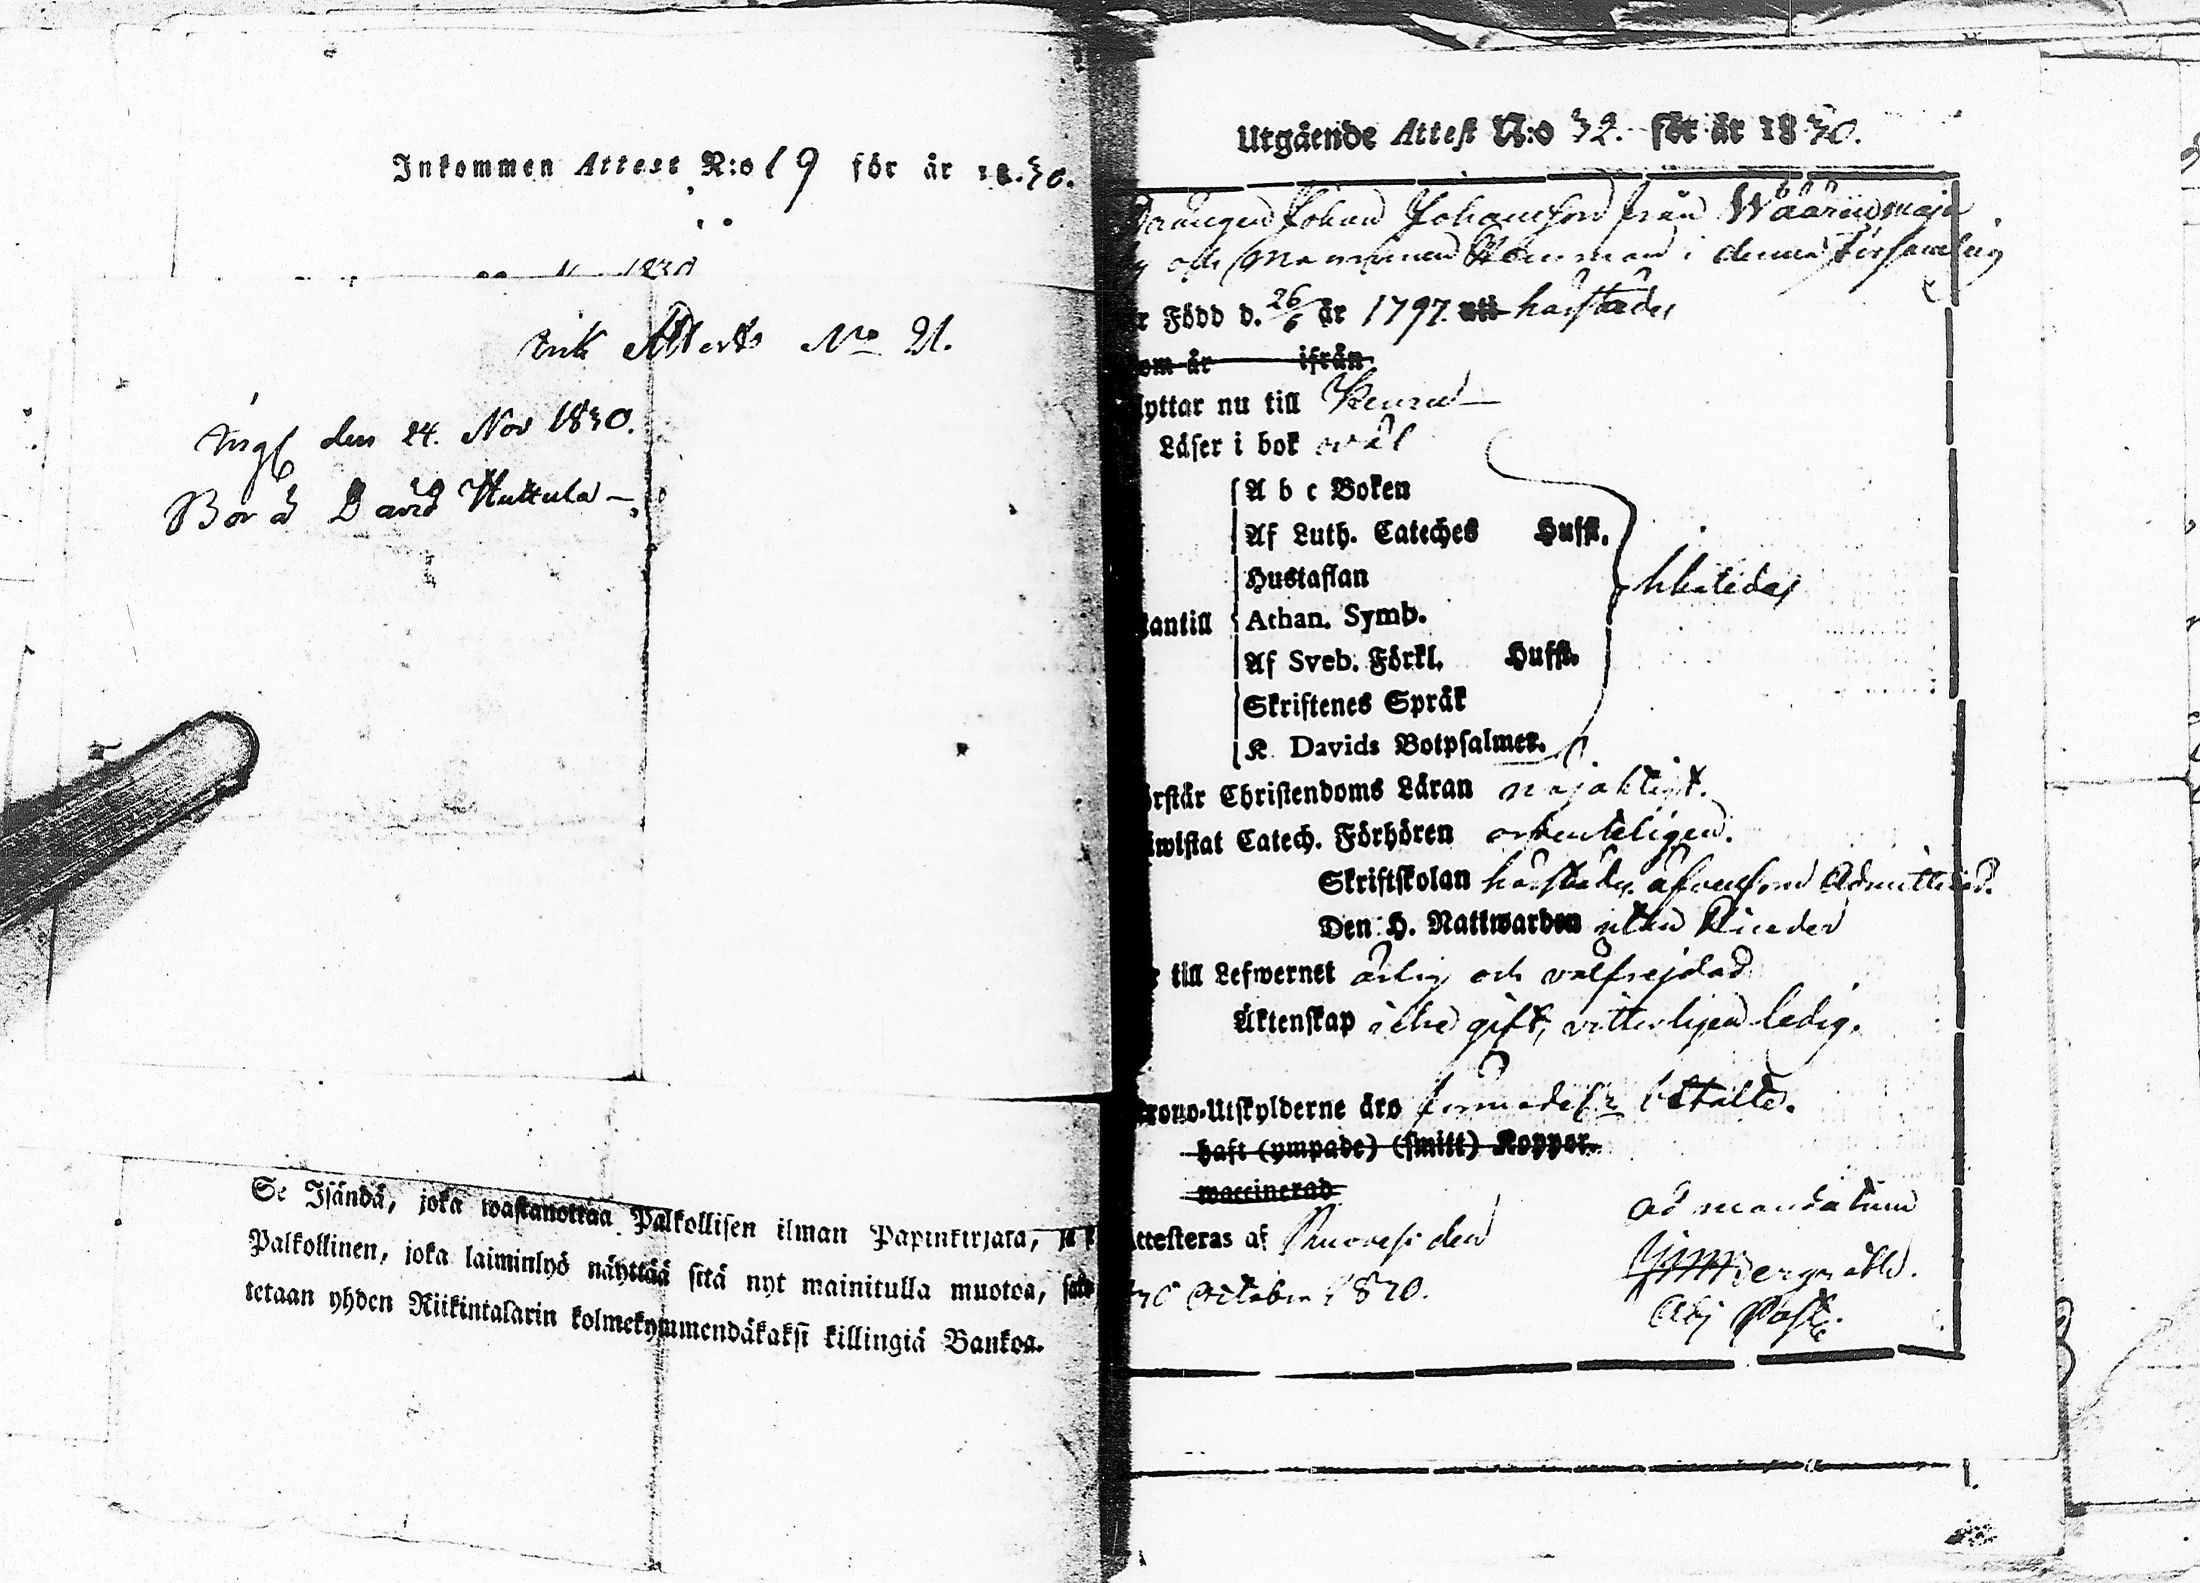 Inkommen Attest N:o 19 för år 1830.
Attest No 21.
den 24. Nov 1830.
Bor å David Huttula
Se Isändä, joka wastanottaa Palkollisen ilman Papinkirjata,
Palkollinen, joka laiminlyö näyttää sitä nyt mainitulla muotoa,
tetaan yhden Riikintalarin kolmekymmendäkaksi killingiä Bankoa.
Utgående Attest N:o 32. för år 1830.
Drängen Johan Johansson från Wäärinmaja
och i denna Församling
Född d. 26/6 år 1797. uti härstädes
om år ifrån
yttar nu till Keuru
Läser i bok wäl
A b c Boken
Af Luth. Cateches Hufst.
Hustaflan
antill Athan. Symb.
Af Sveb. Förkl. Hufst.
Skriftenes Språk
K. Davids Botpsalmer.
rstår Christendoms Läran nöjaktigt.
iwistat Catech. Förhören ordenteligen.
Skriftskolan härstädes äfvensom Admitterad.
Den H. Nattwarden utan hinder
till Lefwernet ärlig och välfrejdad
Äktenskap icke gift, vitterligen ledig.
rono-Utskylderne äro betalte.
haft (ympade) (smitt) Koppor.
waccinerad
ttesteras af Ruovesi den
30 October 1830.
ad mandatum
Adj Past.